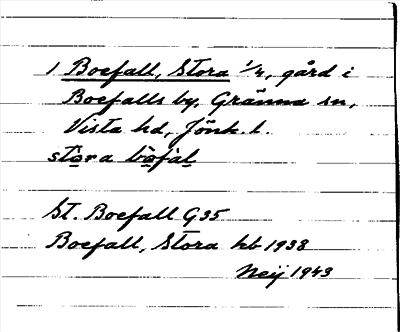 1 Boefall, Stora 1/4, gård i
Boefalls by, Gränna sn,
Vista hd, Jönk. l.
stora bofal
St. Boefall G35
Boefall, Stora hb 1938
Neij 1943